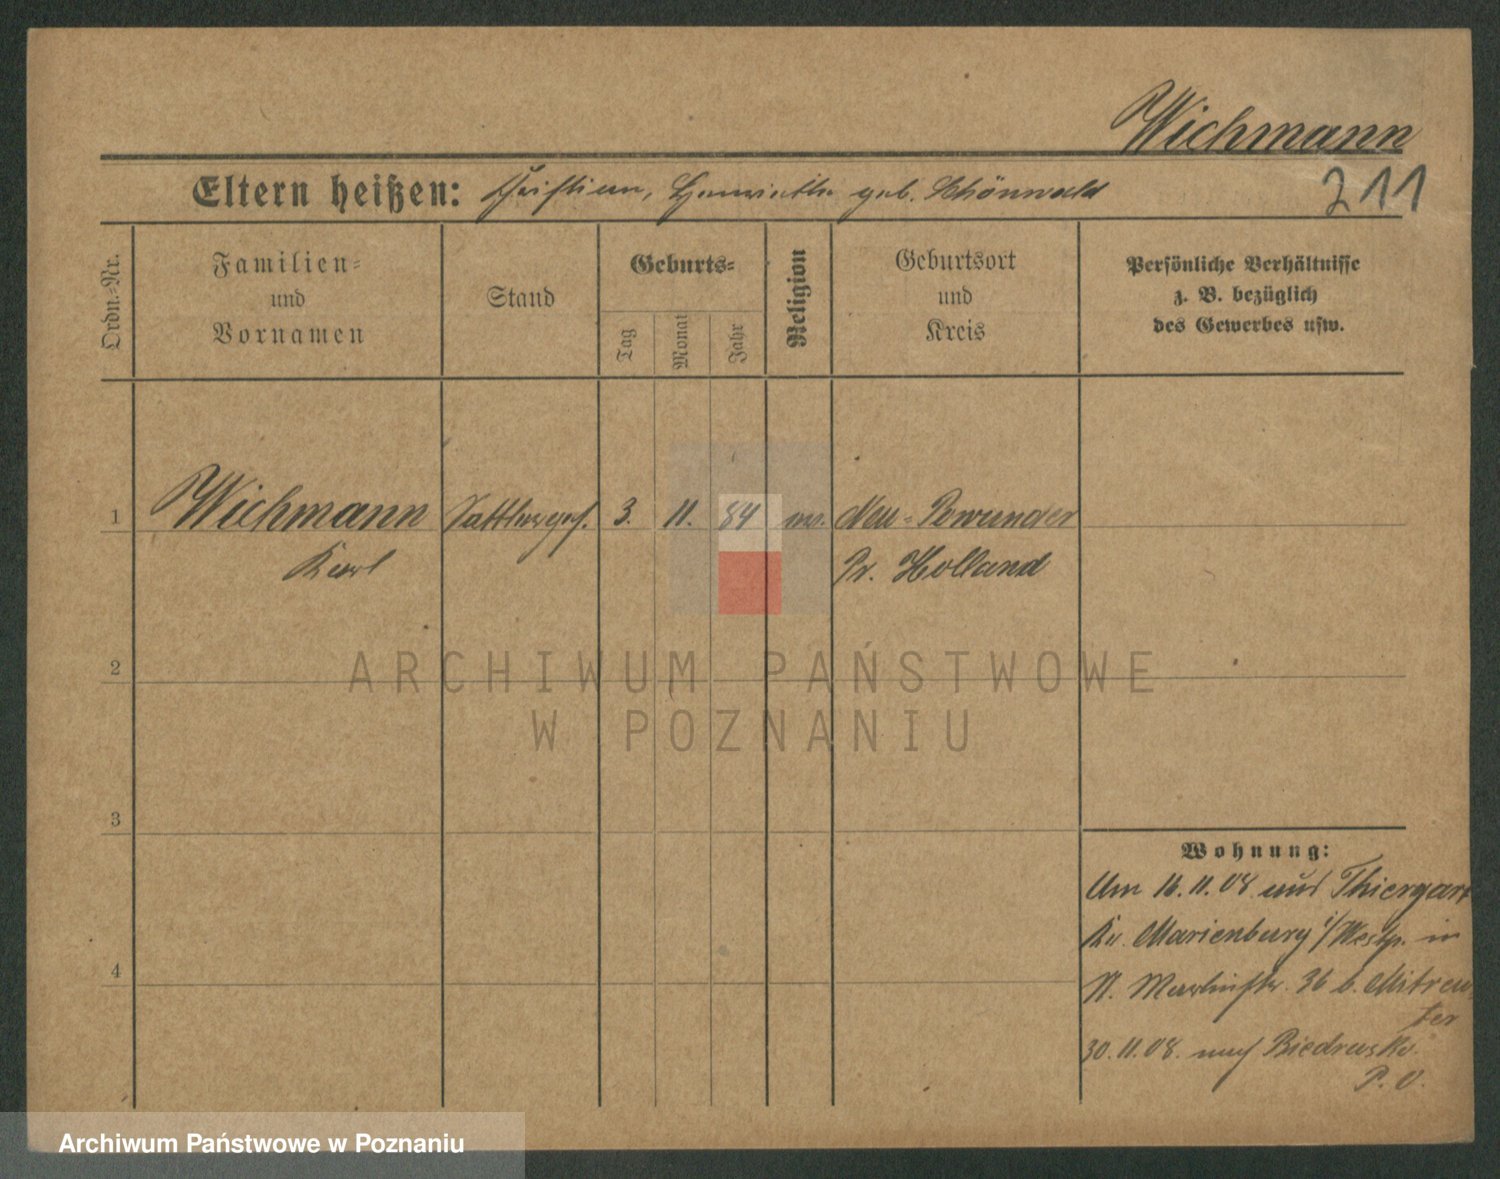 Wichmann
Eltern heißen: Christian, Henriette geb. Schönwald
211
Ordn.-Nr.
Familien-
und
Vornamen
Stand
Geburts-
Tag
Monat
Jahr
Religion
Geburtsort
und
Kreis
Persönliche Verhältnisse
z. B. bezüglich
des Gewerbes usw.
1 Wichmann Sattlerges. 3. 11. 84 ev. Neu-Powunden
Karl Pr. Holland
2
3
4
Wohnung:
Um 16.11.08 aus Thiergart
Kr. Marienburg i/Westp. in
St. Martinstr. 36 b. Mitreu-
ter
30.11.08. nach Biedrusko.
P. O.
ARCHIWUM PAŃSTWOWE
W POZNANIU
Archiwum Państwowe w Poznaniu